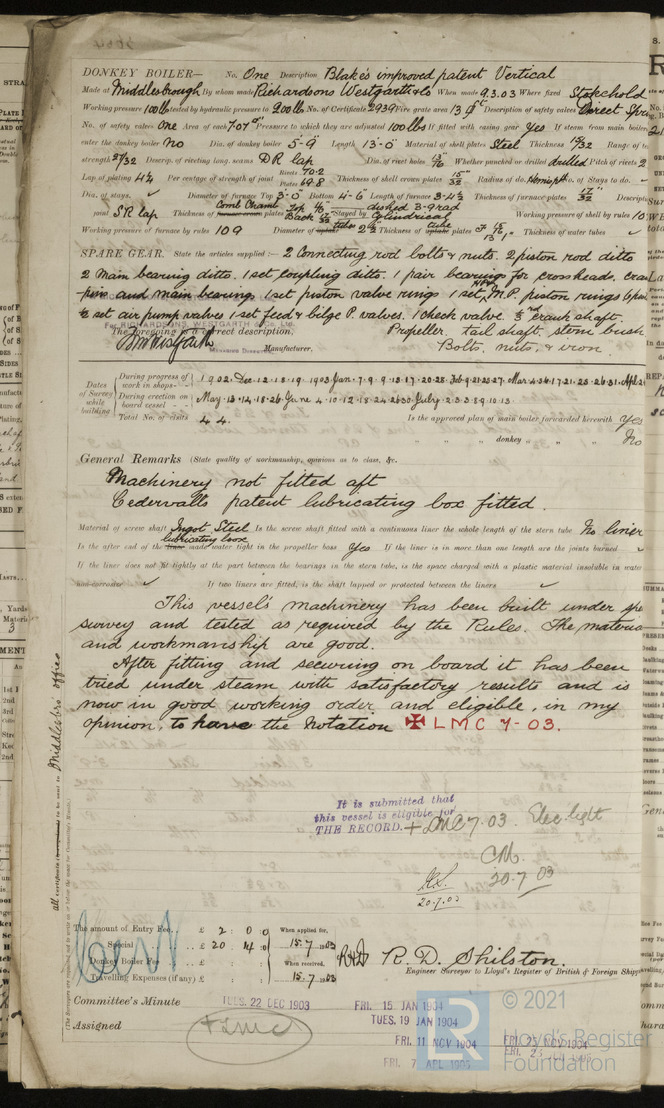 DONKEY BOILER— No. One Description Blake's improved patent Vertical
Made at Middlesbrough By whom made Richardsons Westgarth & Co When made 9.3.03 Where fixed Stokehold
Working pressure 100 lbs tested by hydraulic pressure to 200 lbs No. of Certificate 2939 Fire grate area 13 Description of safety valves Direct Spring
No. of safety valves One Area of each 7.07 Pressure to which they are adjusted 100 lbs If fitted with easing gear Yes If steam from main boilers
enter the donkey boiler No Dia. of donkey boiler 5'-9" Length 13'-0" Material of shell plates Steel Thickness 15/32 Range of
strength 27/32 Descrip. of riveting long. seams D R lap Dia. of rivet holes Whether punched or drilled drilled Pitch of rivets 2
Lap of plating 4¼ Per centage of strength of joint Rivets 70.2 Plates 69.8 Thickness of shell crown plates 15/32 Radius of do. Hemisph No. of Stays to do. ✓
Dia. of stays. ✓ Diameter of furnace Top 3'-0" Bottom 4'-6" Length of furnace 3'-4½ Thickness of furnace plates 17/32 Descript
joint S R lap Thickness of furnace crown plates Comb Chamb Top Back Stayed by dished 3'-9 rad Cylindrical Working pressure of shell by rules 10
Working pressure of furnace by rules 109 Diameter of tube 2½ Thickness of tube plates Thickness of water tubes ✓
SPARE GEAR. State the articles supplied:— 2 Connecting rod bolts & nuts. 2 piston rod ditto
2 Main bearing ditto. 1 set coupling ditto. 1 pair bearings for crossheads. Crank
pins and main bearing. 1 set piston valve rings 1 set M.P. piston rings
½ set air pump valves 1 set feed & bilge P. valves. 1 check valve. crank shaft.
For RICHARDSONS, WESTGARTH & Co. Ltd.
The foregoing is a correct description, Propeller. tail shaft, stern bush
Manufacturer. Bolts, nuts, & iron.
MANAGING DIRECTOR
Dates of Survey while building
During progress of work in shops— 1902. Dec. 12. 18. 19. 1903 Jan. 7. 9. 9. 13. 17. 20. 28. Feb. 9. 21. 25. 27. Mar. 4. 17. 21. 25. 26. 31. Apl. 21
During erection on board vessel— May. 13. 14. 18. 26. June 4. 10. 12. 18. 24. 26. 30. July. 2. 3. 8. 9. 10. 13.
Total No. of visits 44. Is the approved plan of main boiler forwarded herewith Yes
" " " donkey " " " No
General Remarks (State quality of workmanship, opinions as to class, &c.
Machinery not fitted aft
Cedervalls patent lubricating box fitted.
Material of screw shaft Ingot Steel Is the screw shaft fitted with a continuous liner the whole length of the stern tube No liner
lubricating box
Is the after end of the liner made water tight in the propeller boss Yes If the liner is in more than one length are the joints burned ✓
If the liner does not fit tightly at the part between the bearings in the stern tube, is the space charged with a plastic material insoluble in water
non-corrosive ✓ If two liners are fitted, is the shaft lapped or protected between the liners ✓
This vessel's machinery has been built under spe
survey and tested as required by the Rules. The materia
and workmanship are good.
After fitting and securing on board it has been
tried under steam with satisfactory results and is
now in good working order and eligible, in my
opinion, to have the notation ✠ LMC 7-03.
It is submitted that
this vessel is eligible for
THE RECORD. + LMC 7.03. Elec. light
CM.
20.7.03
20.7.03
Middlesbro' office
The amount of Entry Fee.. £ 2 : 0 : 0 When applied for,
Special .. £ 20 : 4 : 0 15.7.1903
Donkey Boiler Fee £ : : When received,
Travelling Expenses (if any) £ : : 15.7.1903
R. D. Shilston.
Engineer Surveyor to Lloyd's Register of British & Foreign Shipping
Committee's Minute TUES. 22 DEC 1903 FRI. 15 JAN 1904
TUES. 19 JAN 1904
Assigned + LMC
FRI. 11 NOV 1904 FRI. 25 NOV 1904
FRI. 7 APL 1905
© 2021
LR
Lloyd's Register
Foundation